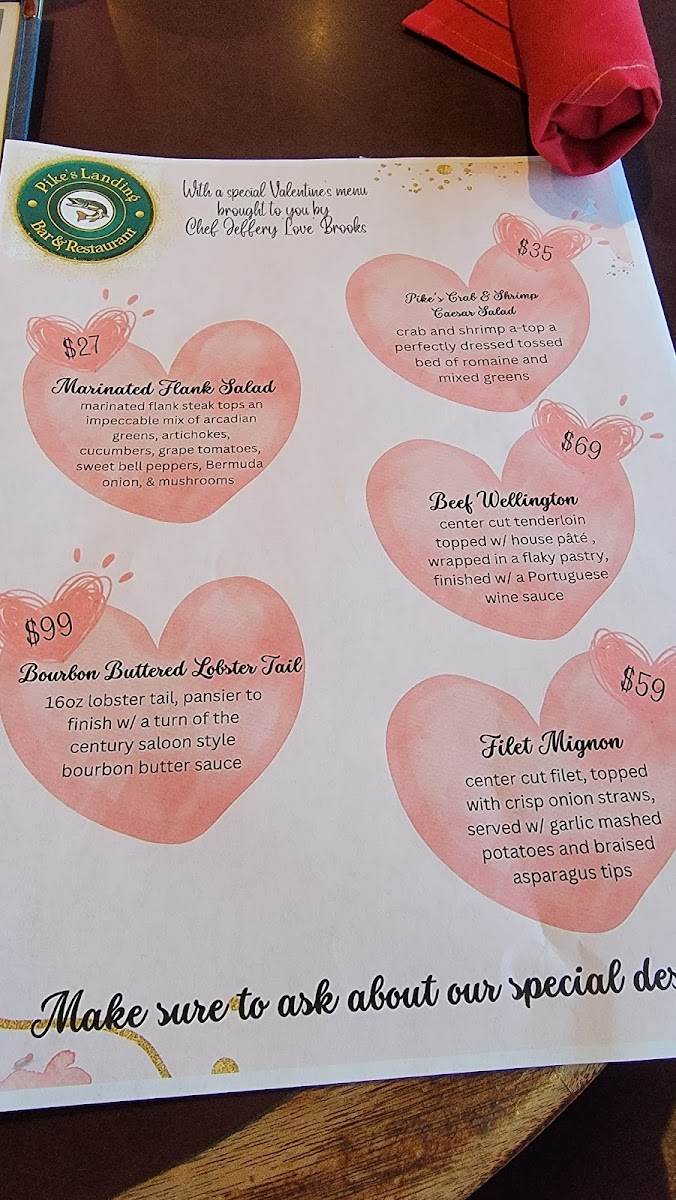 Pike's Landing
Bar & Restaurant
With a special Valentine's menu
brought to you by
Chef Jeffery Love Brooks
$27
Marinated Flank Salad
marinated flank steak tops an
impeccable mix of arcadian
greens, artichokes,
cucumbers, grape tomatoes,
sweet bell peppers, Bermuda
onion, & mushrooms
$35
Pike's Crab & Shrimp
Caesar Salad
crab and shrimp a-top a
perfectly dressed tossed
bed of romaine and
mixed greens
$69
Beef Wellington
center cut tenderloin
topped w/ house pâté ,
wrapped in a flaky pastry,
finished w/ a Portuguese
wine sauce
$99
Bourbon Buttered Lobster Tail
16oz lobster tail, pansier to
finish w/ a turn of the
century saloon style
bourbon butter sauce
$59
Filet Mignon
center cut filet, topped
with crisp onion straws,
served w/ garlic mashed
potatoes and braised
asparagus tips
Make sure to ask about our special des